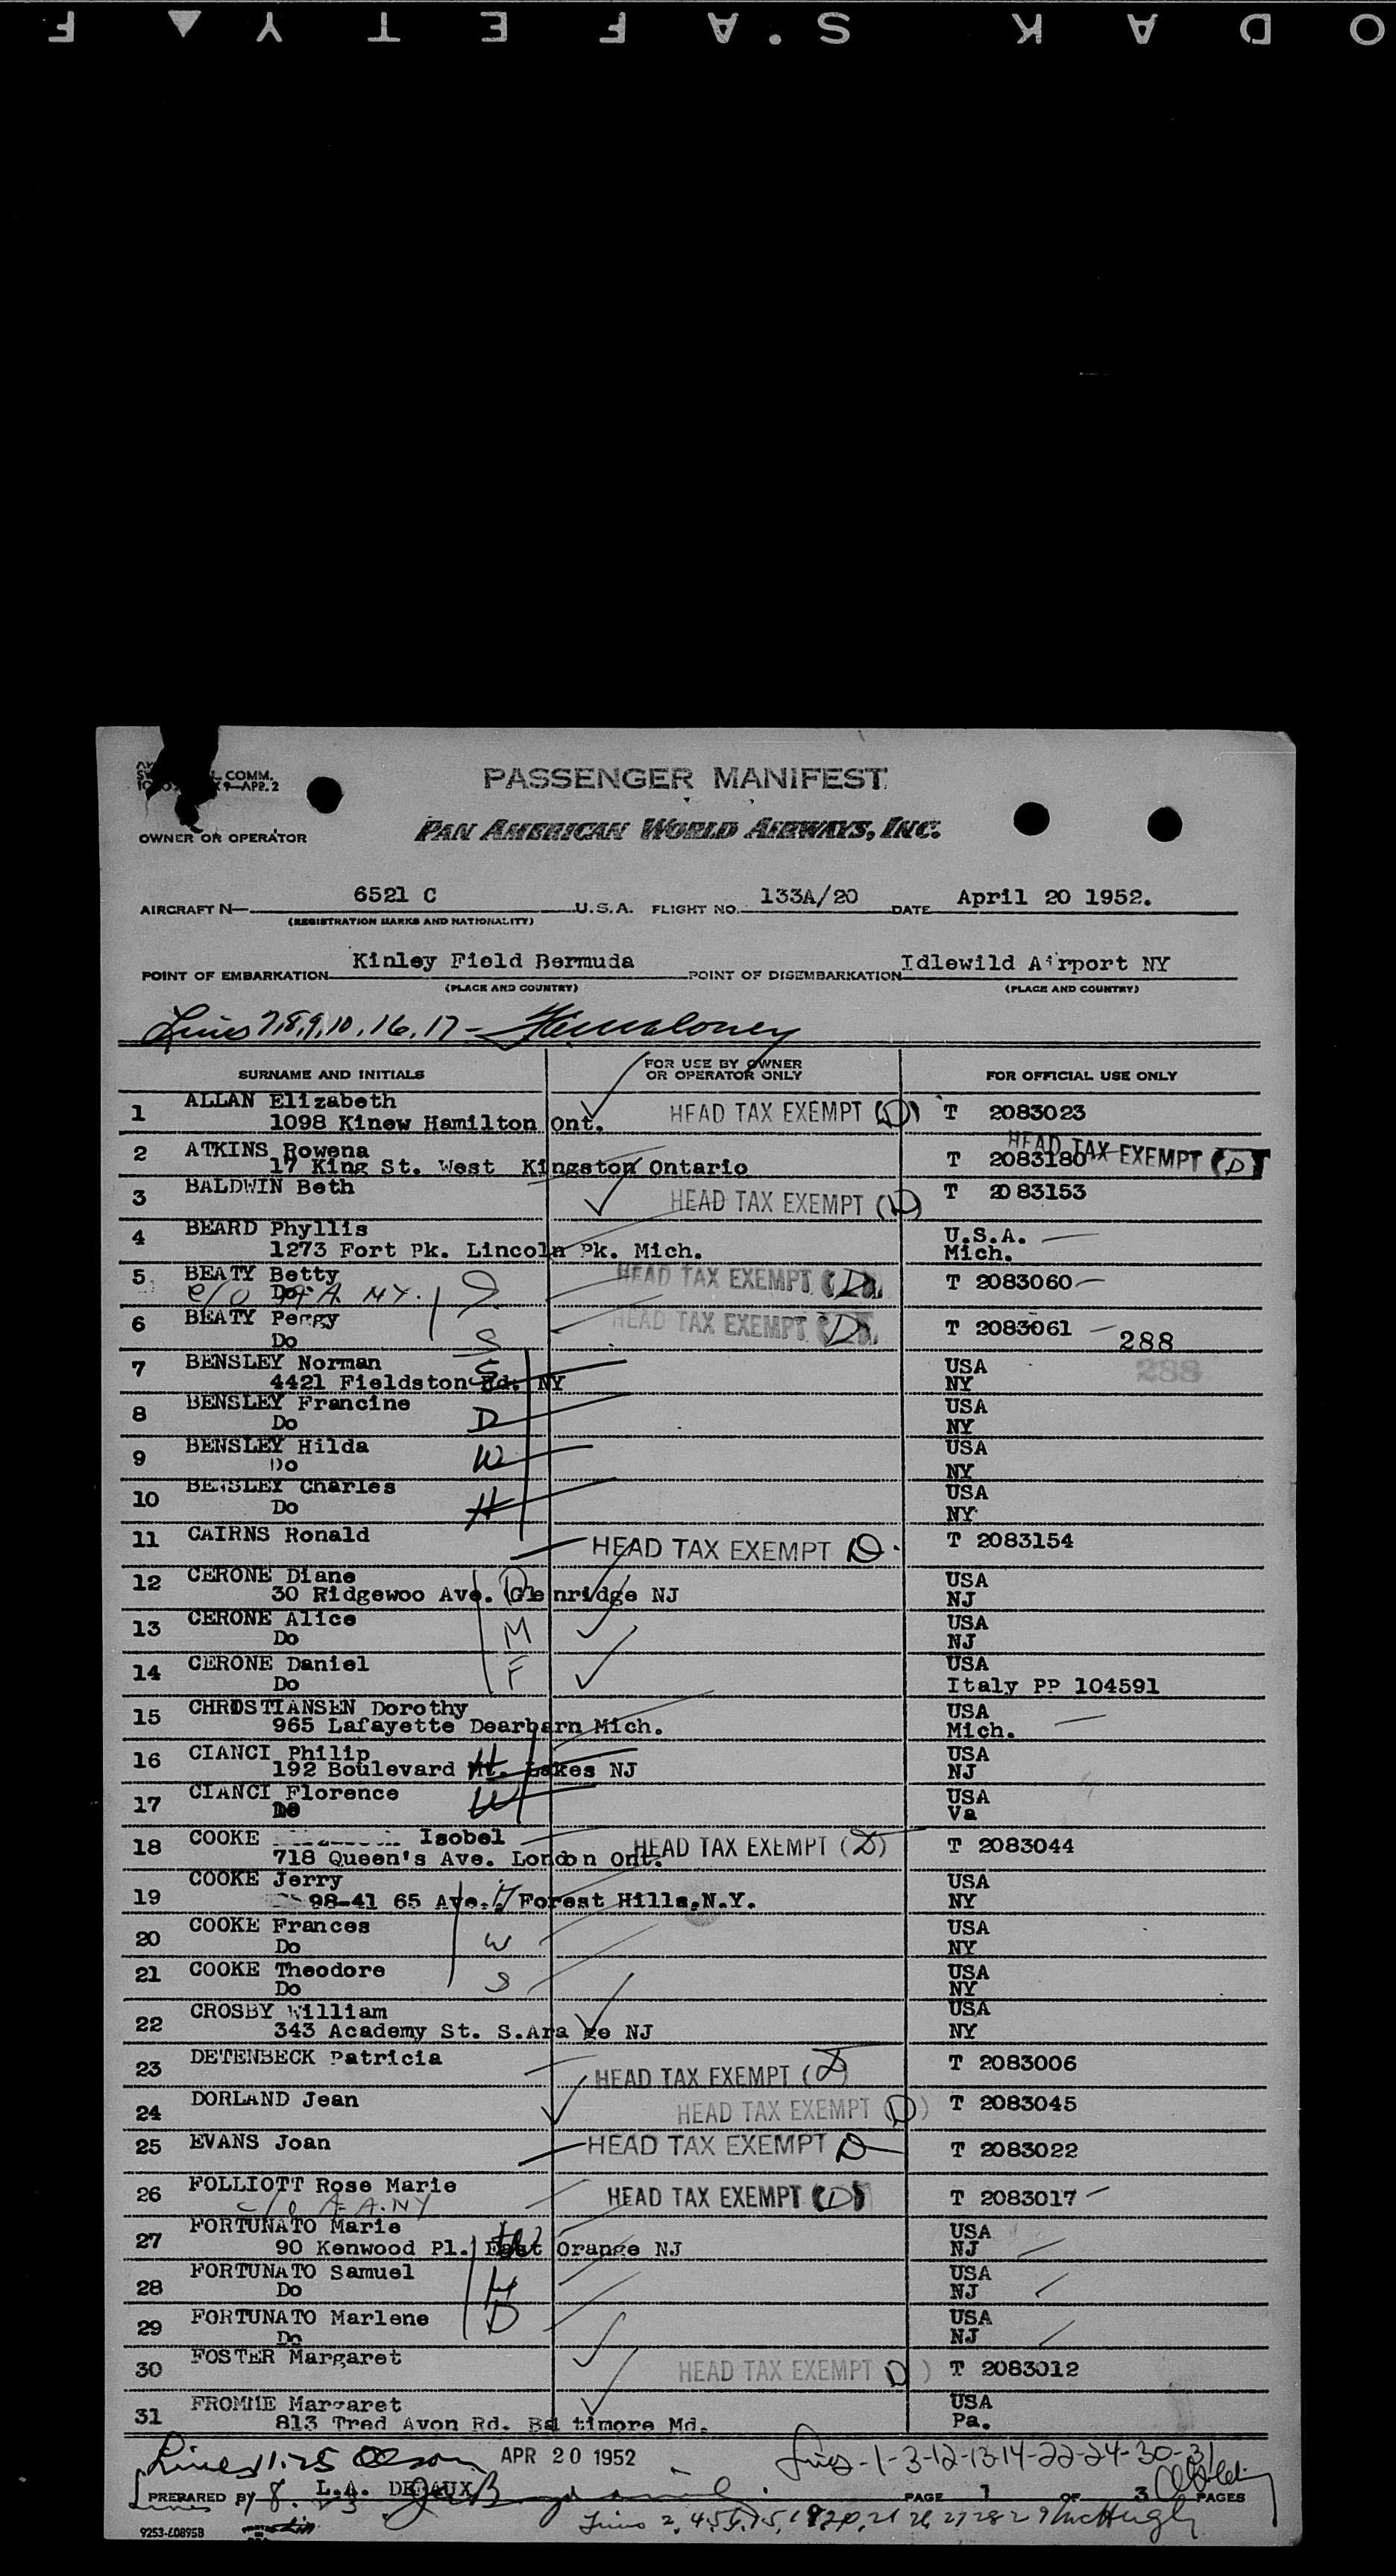 ODAK S.AFETY F
L COMM.
9-APR.2
OWNER OR OPERATOR
PASSENGER MANIFEST
PAN AMERICAN WORLD AIRWAYS, INC.
AIRCRAFT N— 6521 C U.S.A. FLIGHT NO. 133A/20 DATE April 20 1952.
(REGISTRATION MARKS AND NATIONALITY)
POINT OF EMBARKATION Kinley Field Bermuda POINT OF DISEMBARKATION Idlewild Airport NY
(PLACE AND COUNTRY) (PLACE AND COUNTRY)
Lines 7,8,9,10,16,17-
SURNAME AND INITIALS FOR USE BY OWNER OR OPERATOR ONLY FOR OFFICIAL USE ONLY
1 ALLAN Elizabeth
1098 Kinew Hamilton Ont. HEAD TAX EXEMPT (D) T 2083023
2 ATKINS Rowena
17 King St. West Kingston Ontario T 2083180 HEAD TAX EXEMPT (D)
3 BALDWIN Beth HEAD TAX EXEMPT (D) T 2083153
4 BEARD Phyllis U.S.A.
1273 Fort Pk. Lincoln Pk. Mich. Mich.
5 BEATY Betty HEAD TAX EXEMPT (D) T 2083060
Do c/o A.A. NY.
6 BEATY Peggy HEAD TAX EXEMPT (D) T 2083061 288
Do S
7 BENSLEY Norman S USA 288
4421 Fieldston Rd. NY NY
8 BENSLEY Francine USA
Do D NY
9 BENSLEY Hilda USA
Do W NY
10 BENSLEY Charles USA
Do H NY
11 CAIRNS Ronald HEAD TAX EXEMPT D T 2083154
12 CERONE Diane D USA
30 Ridgewoo Ave. Glenridge NJ NJ
13 CERONE Alice USA
Do M NJ
14 CERONE Daniel USA
Do F Italy PP 104591
15 CHRISTIANSEN Dorothy USA
965 Lafayette Dearbarn Mich. Mich.
16 CIANCI Philip USA
192 Boulevard Mt. Lakes NJ H NJ
17 CIANCI Florence USA
Do W Va
18 COOKE Isobel HEAD TAX EXEMPT (D) T 2083044
718 Queen's Ave. London Ont.
19 COOKE Jerry USA
98-41 65 Ave. H Forest Hills,N.Y. NY
20 COOKE Frances USA
Do W NY
21 COOKE Theodore USA
Do S NY
22 CROSBY William USA
343 Academy St. S. NJ NY
23 DETENBECK Patricia HEAD TAX EXEMPT (D) T 2083006
24 DORLAND Jean HEAD TAX EXEMPT (D) T 2083045
25 EVANS Joan HEAD TAX EXEMPT D T 2083022
26 FOLLIOTT Rose Marie HEAD TAX EXEMPT (D) T 2083017
c/o A.A. NY
27 FORTUNATO Marie USA
90 Kenwood Pl. East Orange NJ W NJ
28 FORTUNATO Samuel USA
Do H NJ
29 FORTUNATO Marlene USA
Do D NJ
30 FOSTER Margaret HEAD TAX EXEMPT D) T 2083012
31 FROMME Margaret USA
813 Tred Avon Rd. Baltimore Md. Pa.
Lines 11-25 Olson APR 20 1952 Lines-1-3-12-13-14-22-24-30-31
PREPARED BY L.A. PAGE 1 OF 3 PAGES
Lines 18. 23
Lines 2, 4,5,6,15,19,20,21 26 27 28 29 McHugh
9253-60895B